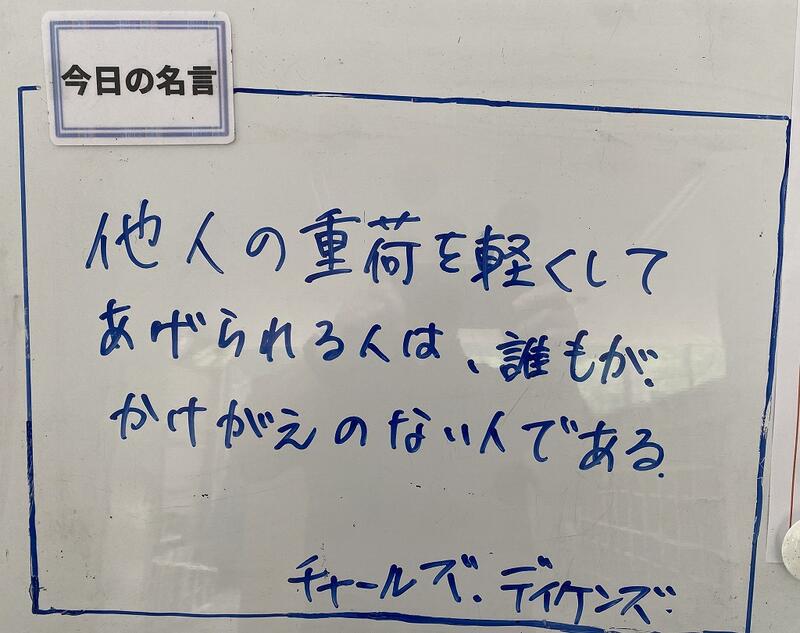 今日の名言
他人の重荷を軽くして
あげられる人は、誰もが、
かけがえのない人である.
チャールズ.ディケンズ.